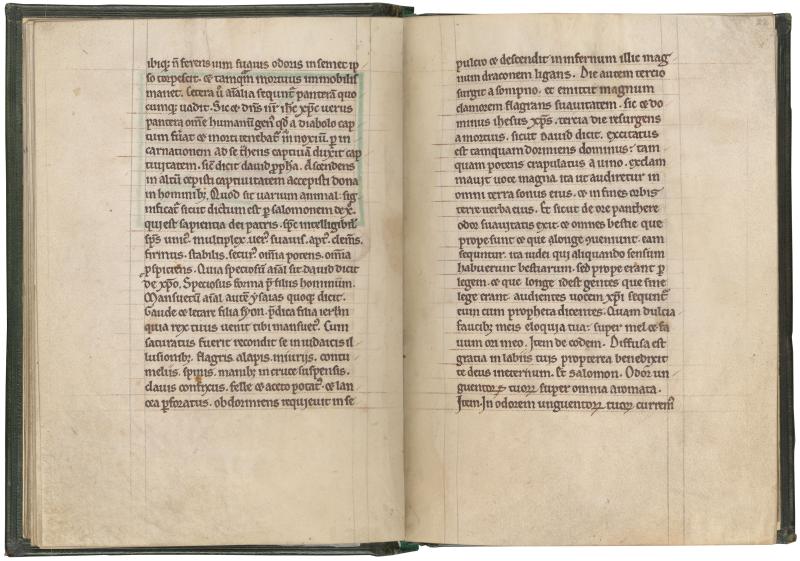 ibiq; n̄ ferens uim suauis odoris in semet ip
so torpescit. et tamq̄m mortuus immobilis
manet. Cetera ū aīalia sequunt̄ panterā quo
cumq; uadit. Sic et dn̄s nr̄ ihc xp̄c uerus
pantera om̄e humanū genꝰ qd̄ a diabolo cap
tum fuat et morti tenebat̄ in noxiū. ꝑ in
carnationem ad se t̄hens captiuā duxit cap
tiuitatem. sic̄ dicit dauid ꝓpha. Ascendens
in altū cepisti captiuitatem accepisti dona
in hominibꝫ. Quod sit uarium animal. sig
nificat̄ sicut dictum est ꝑ salomonem de x̄.
qui est sapientia dei patris. sp̄c intelligibil
sp̄s unicꝰ. multiplex. uerꝰ suauis. aptꝰ. clem̄s.
firmus. stabilis. securꝰ om̄ia potens. om̄ia
ꝑspiciens. Quia speciosū aīal sit dauid dicit
de xp̄o. Speciosus forma p̄ filiis hominum.
Mansuetū aīal autē ysaias quoq; dicit.
Gaude et letare filia syon. p̄dica filia ierl̄m
quia rex tuus uenit tibi mansuetꝰ. Cum
saturatus fuerit recondit se in iudaicis il
lusionibꝫ. flagris. alapis. iniuriis. contu
meliis. spinis. manibꝫ in cruce suspensis.
clauis confixus. felle et aceto potatꝰ. et lan
cea ꝑforatus. obdormiens requieuit in se
22
pulcro et descendit in infernum illic mag
num draconem ligans. Die autem tercio
surgit a sompno. et emittit magnum
clamorem flagrans suauitatem. sic et do
minus ihesus xp̄s. tercia die resurgens
a mortuis. sicut dauid dicit. excitatus
est tamquam dormiens dominus. tam
quam potens crapulatus a uino. exclam
mauit uoce magna. ita ut audiretur in
omni terra sonus eius. et in fines orbis
terre uerba eius. Et sicut de ore panthere
odor suauitatis exit. et omnes bestie que
prope sunt et que alonge ꝓueniunt. eam
sequuntur. ita iudei qui aliquando sensum
habuerunt bestiarum. sed prope erant ꝑ
legem. et que longe idest gentes que sine
lege erant. audientes uocem xp̄i sequunt̄
eum cum propheta dicentes. Quam dulcia
faucibꝫ meis eloquia tua. super mel et fa
uum ori meo. Item de eodem. Diffusa est
gratia in labiis tuis propterea benedixit
te deus ineternum. Et salomon. Odor un
guentorꝝ tuorꝝ super omnia aromata.
Item. In odorem unguentorꝝ tuorꝝ curremꝰ